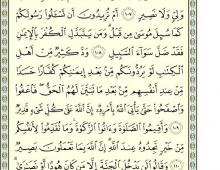 وَلِيٍّ وَلَا نَصِيرٍ ١٠٧ أَمْ تُرِيدُونَ أَن تَسْـَٔلُوا۟ رَسُولَكُمْ
كَمَا سُئِلَ مُوسَىٰ مِن قَبْلُ وَمَن يَتَبَدَّلِ ٱلْكُفْرَ بِٱلْإِيمَـٰنِ
فَقَدْ ضَلَّ سَوَآءَ ٱلسَّبِيلِ ١٠٨ وَدَّ كَثِيرٌ مِّنْ أَهْلِ
ٱلْكِتَـٰبِ لَوْ يَرُدُّونَكُم مِّنۢ بَعْدِ إِيمَـٰنِكُمْ كُفَّارًا حَسَدًا
مِّنْ عِندِ أَنفُسِهِم مِّنۢ بَعْدِ مَا تَبَيَّنَ لَهُمُ ٱلْحَقُّ فَٱعْفُوا۟
وَٱصْفَحُوا۟ حَتَّىٰ يَأْتِىَ ٱللَّهُ بِأَمْرِهِۦٓ إِنَّ ٱللَّهَ عَلَىٰ كُلِّ شَىْءٍ قَدِيرٌ
١٠٩ وَأَقِيمُوا۟ ٱلصَّلَوٰةَ وَءَاتُوا۟ ٱلزَّكَوٰةَ وَمَا تُقَدِّمُوا۟ لِأَنفُسِكُم
مِّنْ خَيْرٍ تَجِدُوهُ عِندَ ٱللَّهِ إِنَّ ٱللَّهَ بِمَا تَعْمَلُونَ بَصِيرٌ
١١٠ وَقَالُوا۟ لَن يَدْخُلَ ٱلْجَنَّةَ إِلَّا مَن كَانَ هُودًا أَوْ نَصَـٰرَىٰ